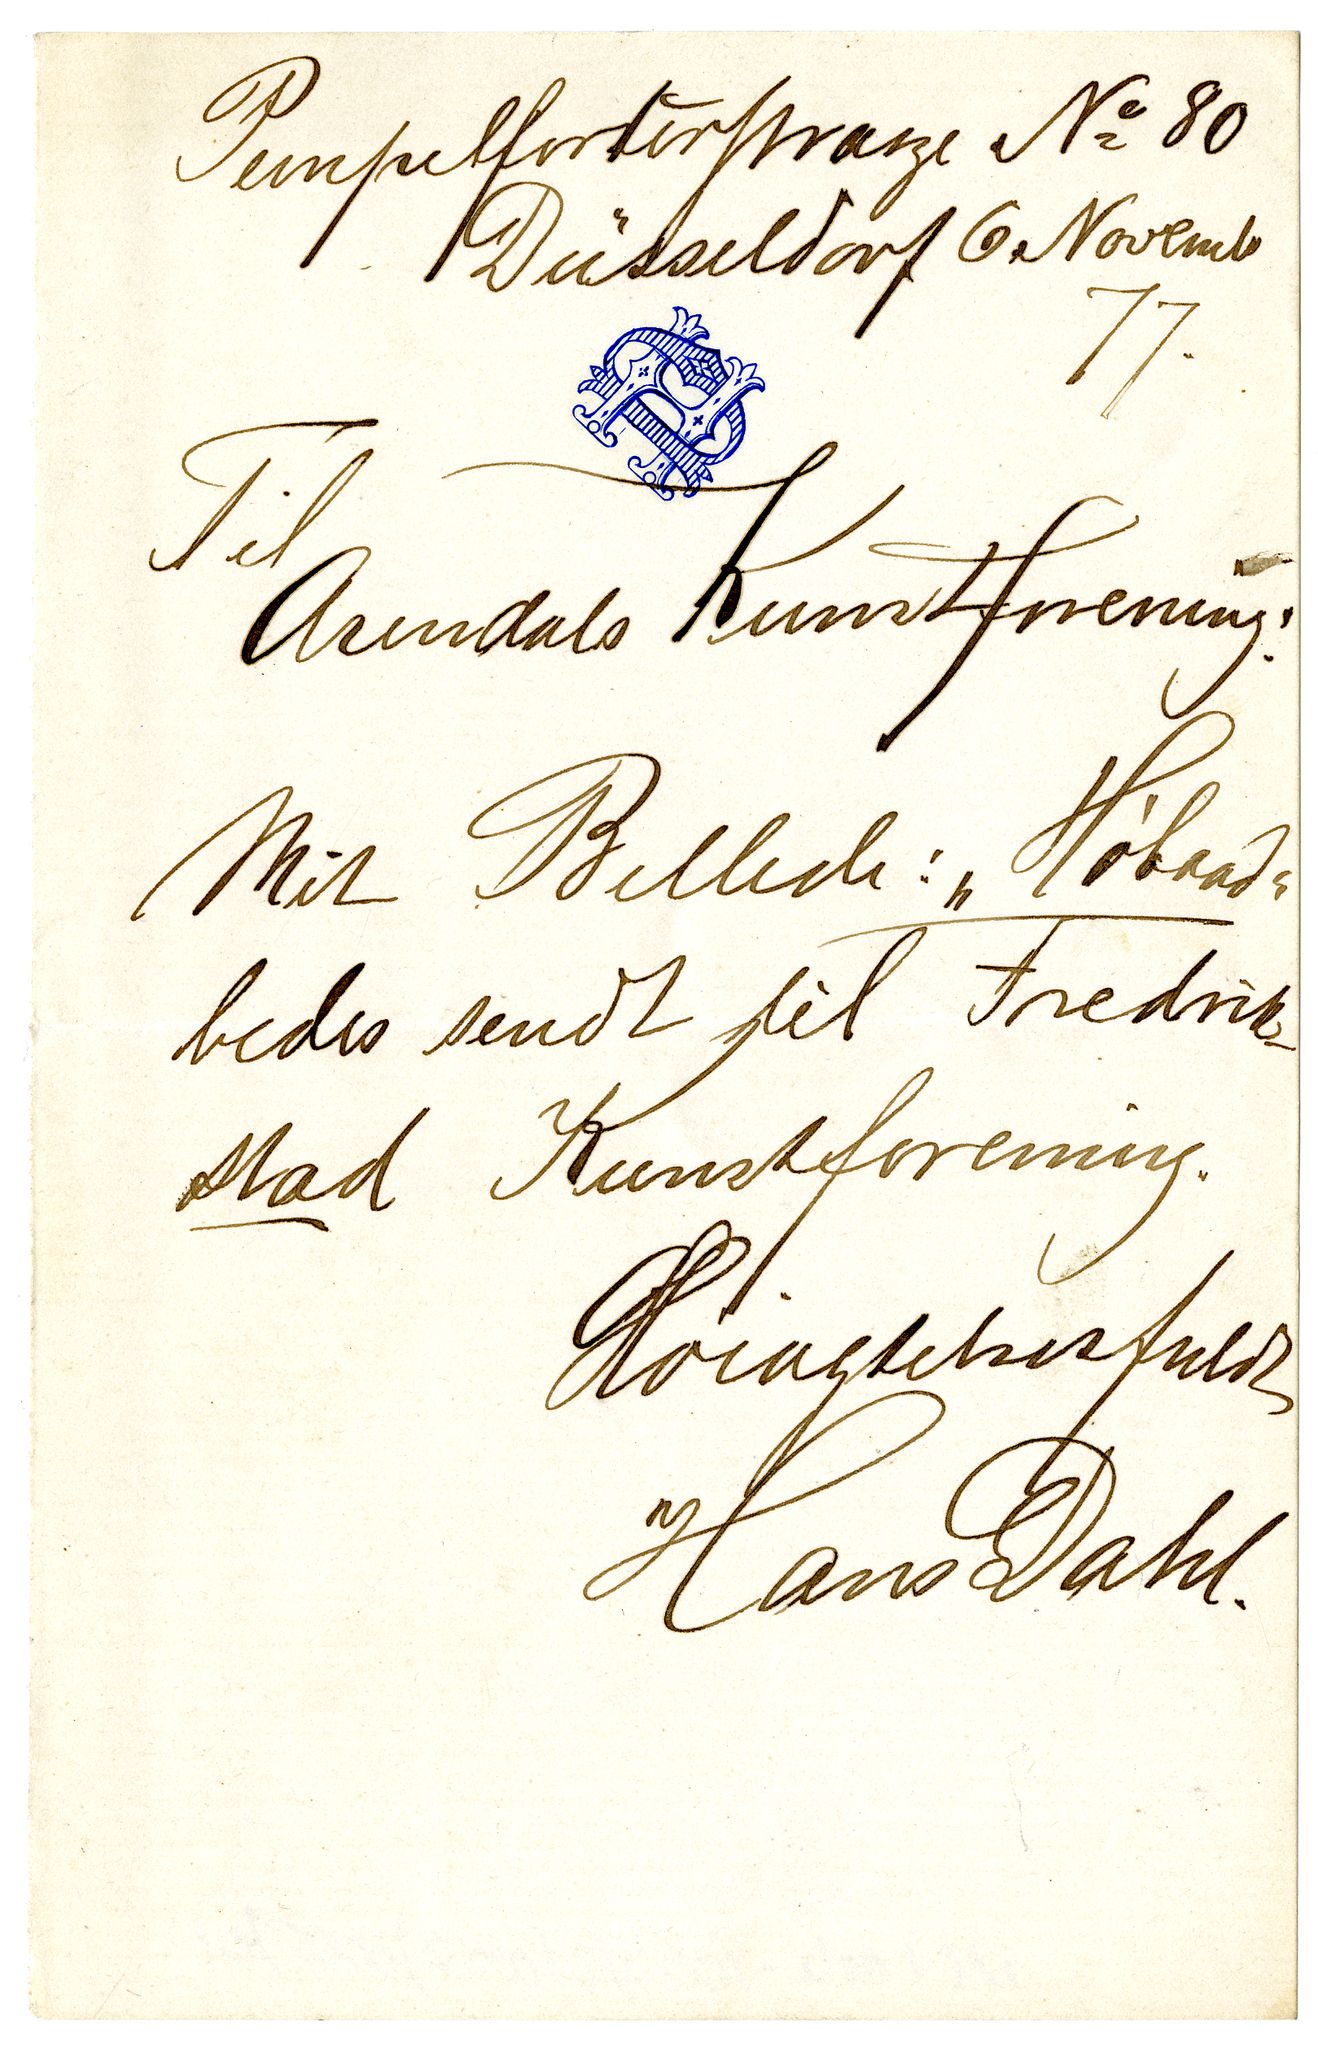 Pempelforterstrasze No 80
Düsseldorf 6. Novemb
77.
Til
Arendals Kunstforening!
Mit Billede: „Höbaad“
bedes sendt til Fredrik-
stad Kunstforening.
Höiagtelsesfuldt
Hans Dahl.